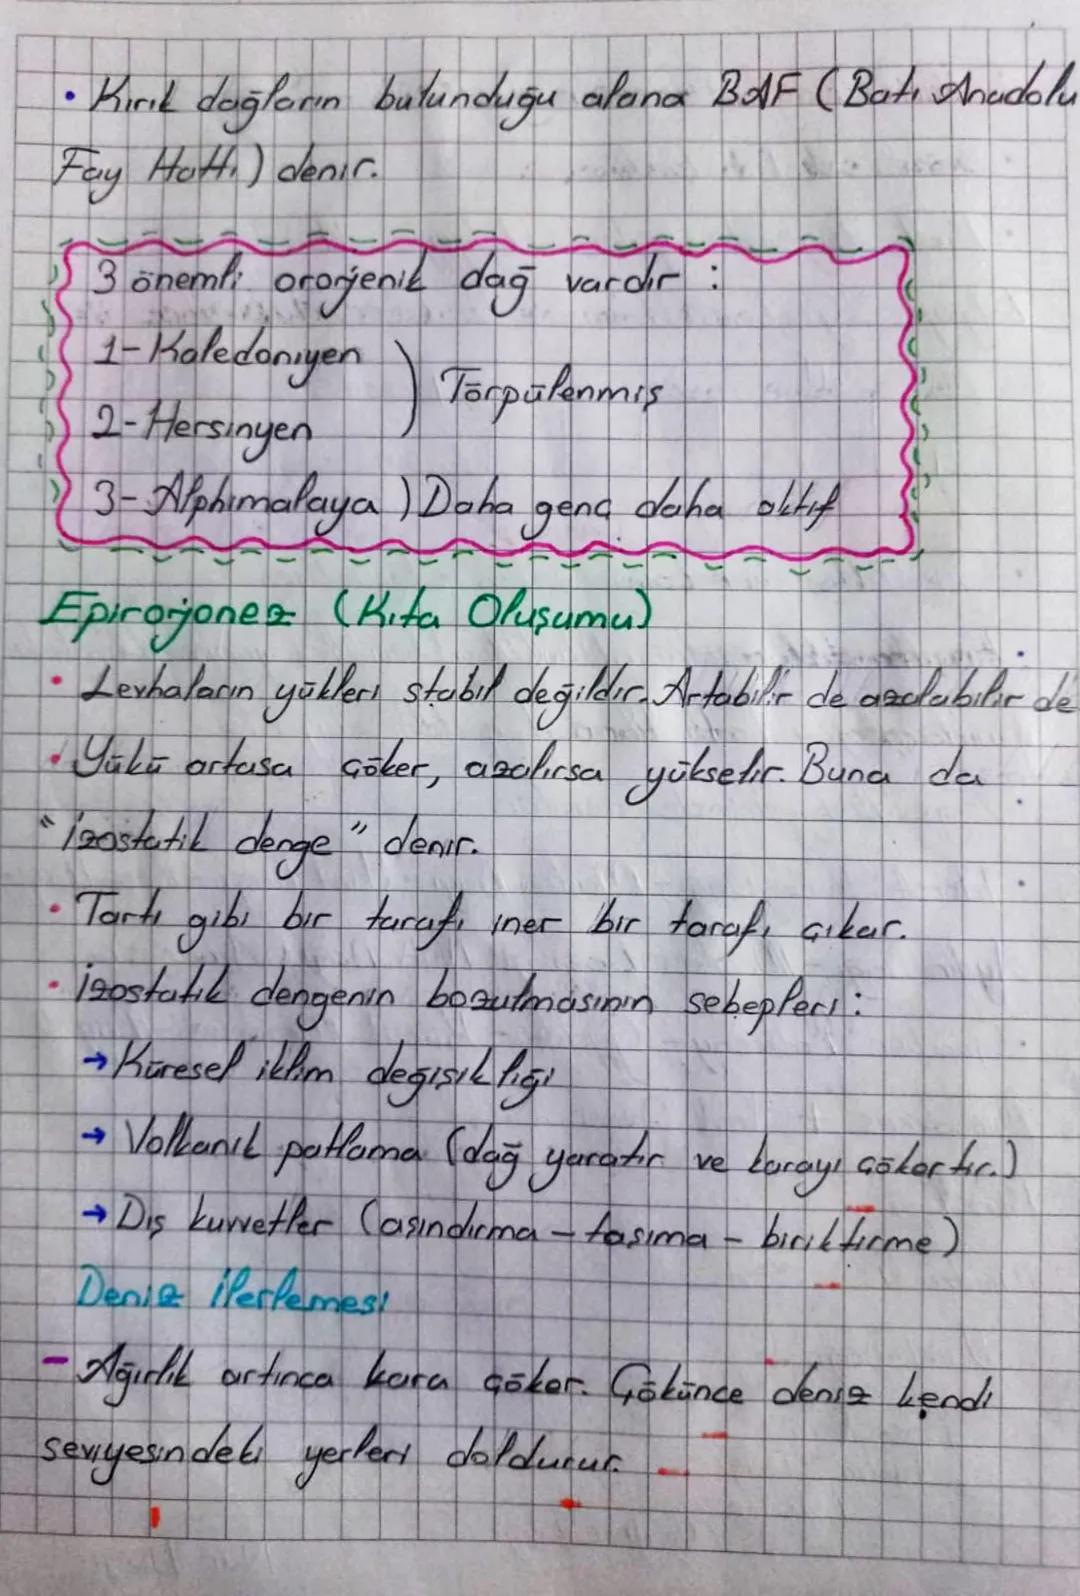 • Kırık dağların bulunduğu alana BAF (Batı Anadolu
Fay Hattı) denir.
3 önemli ororjenik dağ vardır :
1- Kaledoniyen
2- Hersinyen ) Törpülenmiş
3- Alphimalaya ) Daha genç daha aktif
Epirorjonez (Kıta Oluşumu)
• Levhaların yükleri stabil değildir. Artabilir de azalabilir de
• Yükü artasa çöker, azalırsa yükselir. Buna da
"izostatik denge" denir.
• Tartı gibi bir tarafı iner bir tarafı çıkar.
• İzostatik dengenin bozulmasının sebepleri :
→ Küresel iklim değişikliği
→ Volkanik patlama (dağ yaratır ve karayı çökertir.)
→ Dış kuvvetler (aşındırma - taşıma - biriktirme)
Deniz ilerlemesi
- Ağırlık artınca kara çöker. Çökünce deniz kendi
seviyesindeki yerleri doldurur.